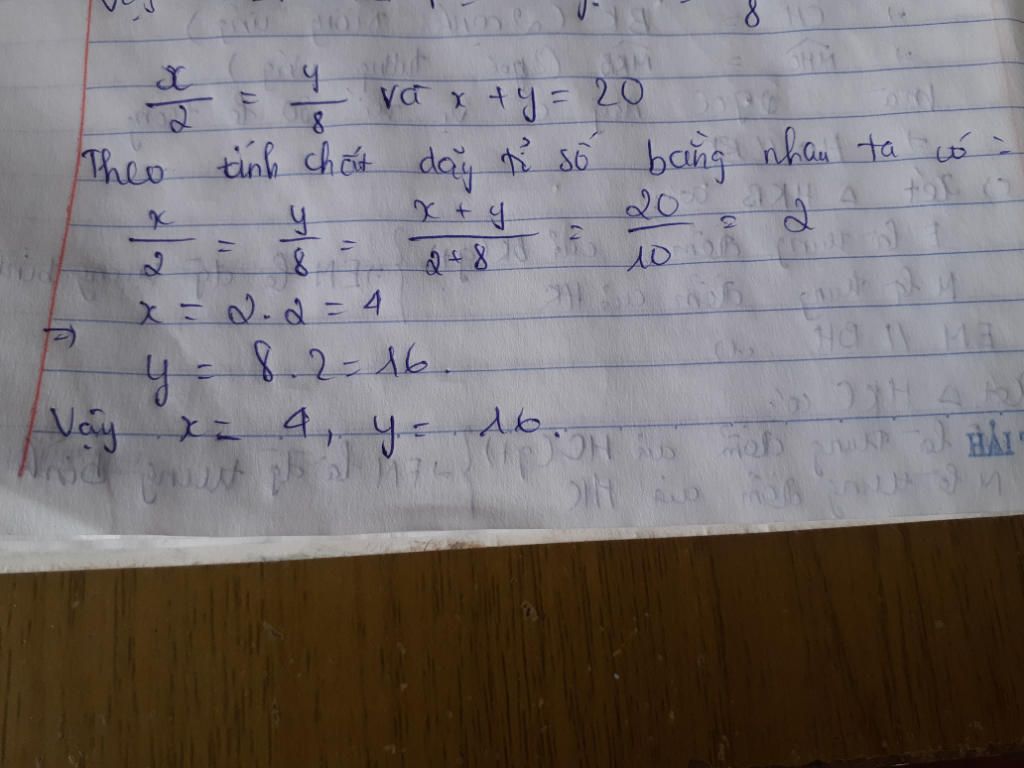 8
x/2 = y/8 và x + y = 20
Theo tính chất dãy tỉ số bằng nhau ta có :
x/2 = y/8 = x + y/2+8 = 20/10 = 2
x = 2.2 = 4
⇒
y = 8.2 = 16.
Vậy x = 4, y = 16.